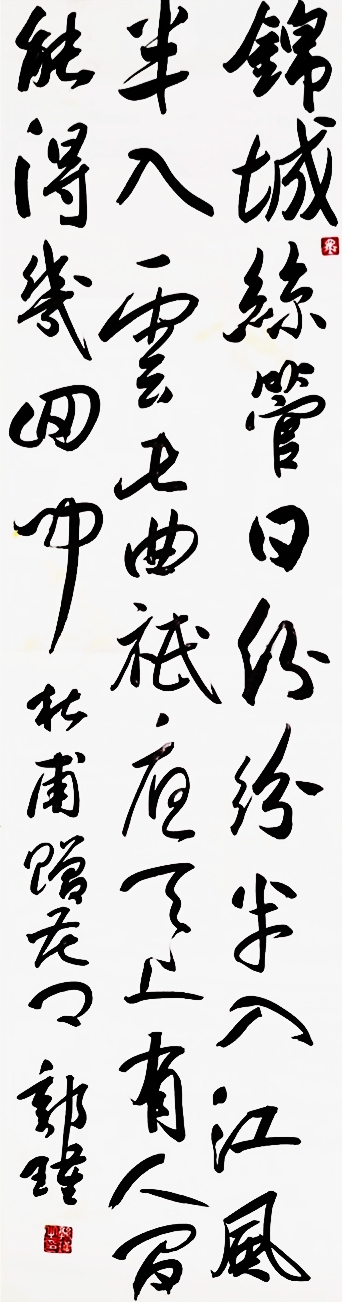 錦城絲管日紛紛半入江風
半入雲此曲祇應天上有人間
能得幾回聞 杜甫贈花卿